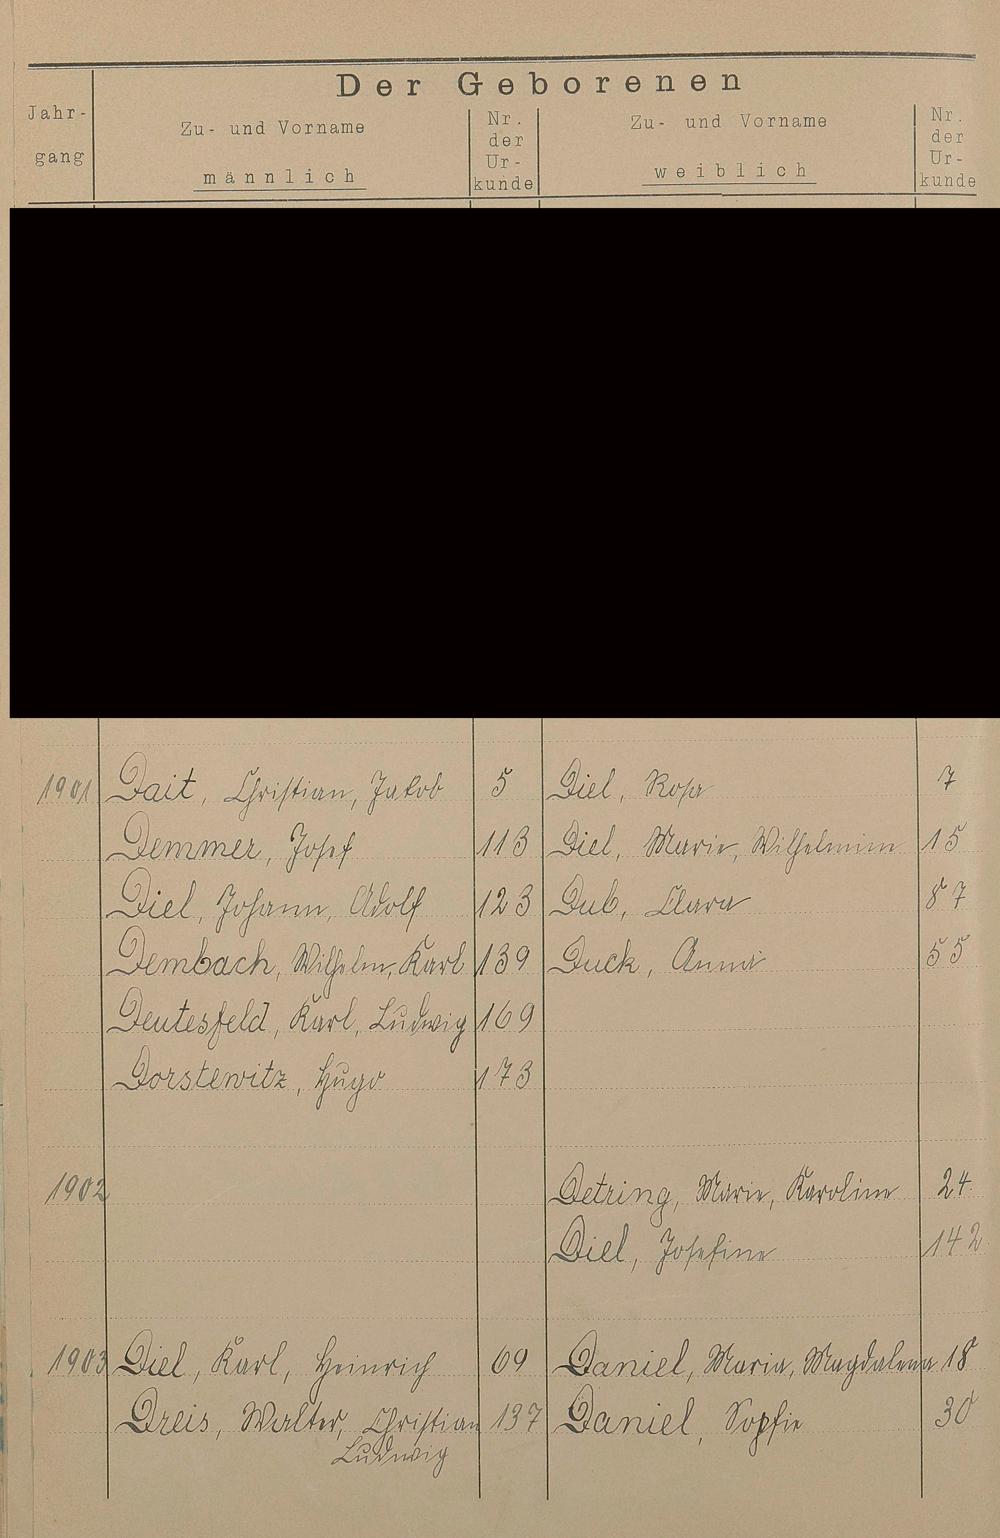 Der Geborenen
Jahr-
gang
Zu- und Vorname
männlich
Nr.
der
Ur-
kunde
Zu- und Vorname
weiblich
Nr.
der
Ur-
kunde
1901 Dait, Christian, Jakob 5 Diel, Rosa 7
Demmer, Josef 113 Diel, Marie, Wilhelmine 15
Diel, Johann, Adolf 123 Dub, Clara 87
Dembach, Wilhelm, Karl 139 Duck, Anna 55
Deutesfeld, Karl, Ludwig 169
Dorstewitz, Hugo 173
1902 Detring, Marie, Karoline 24
Diel, Josefine 142
1903 Diel, Karl, Heinrich 69 Daniel, Maria, Magdalena 18
Dreis, Walter, Christian 137 Daniel, Sophie 30
Ludwig